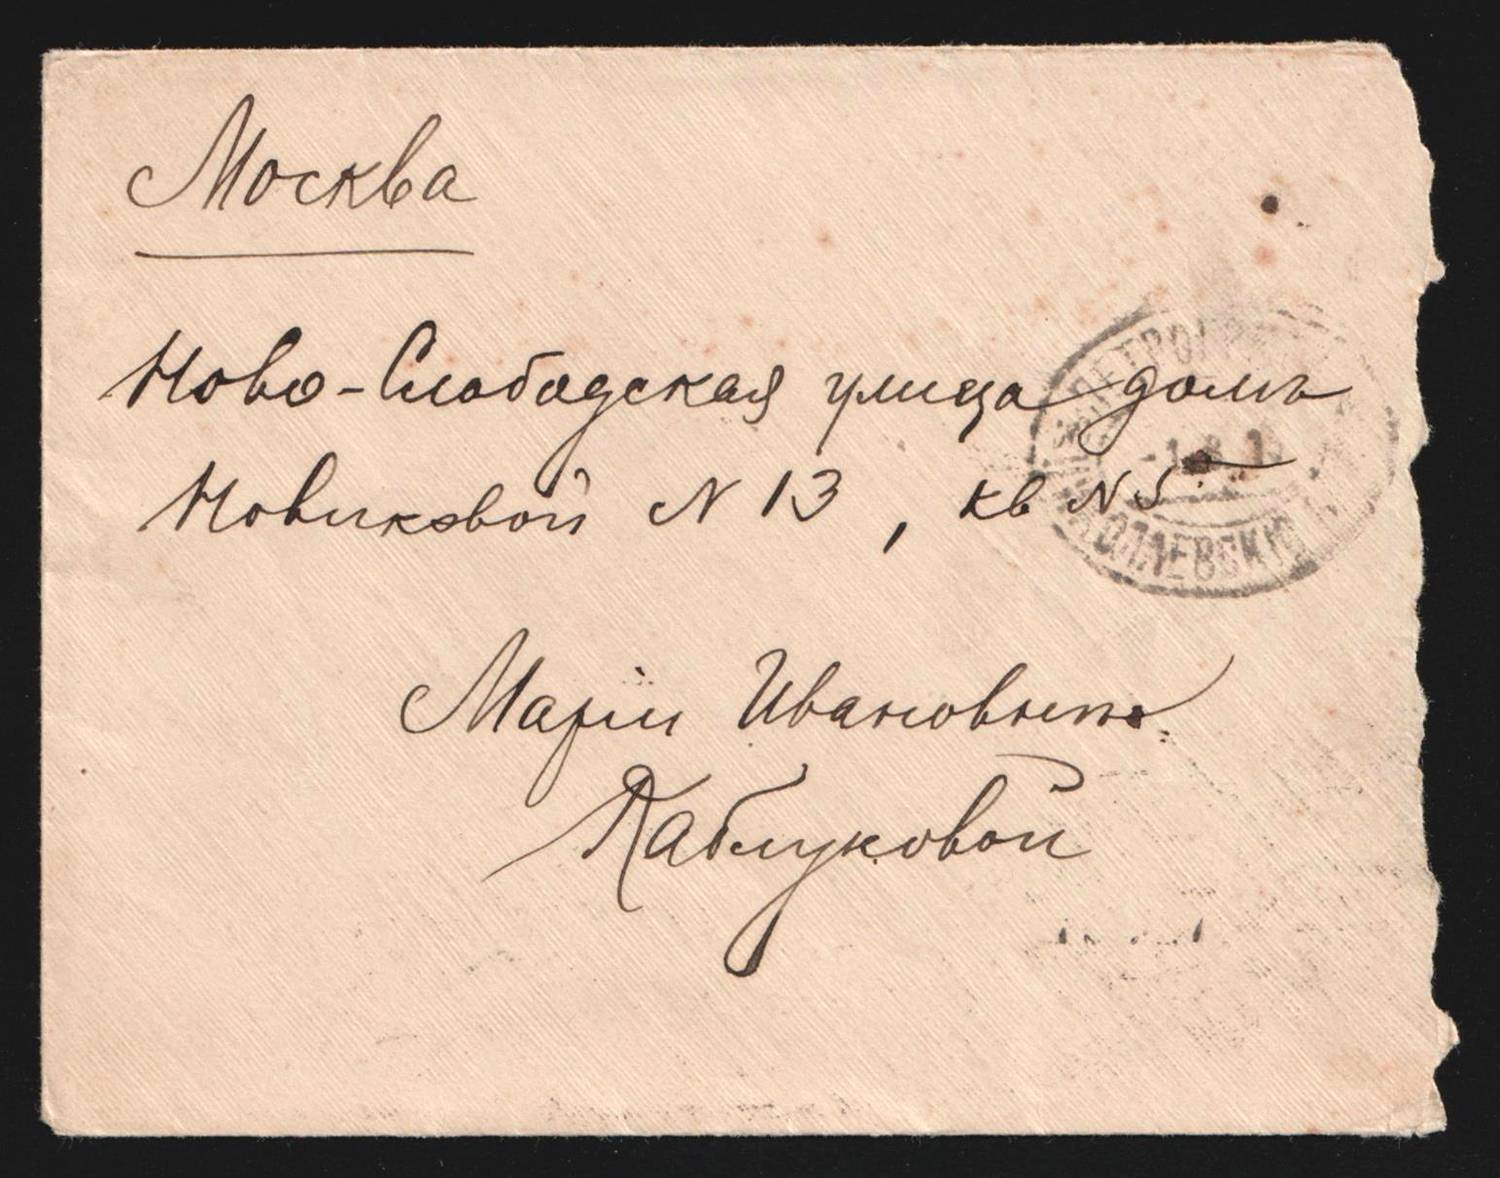 Москва
Ново-Слободская улица домъ
Новиковой N 13, кв N 5
Маріи Ивановнѣ
Каблуковой
ПЕТРОГРАД